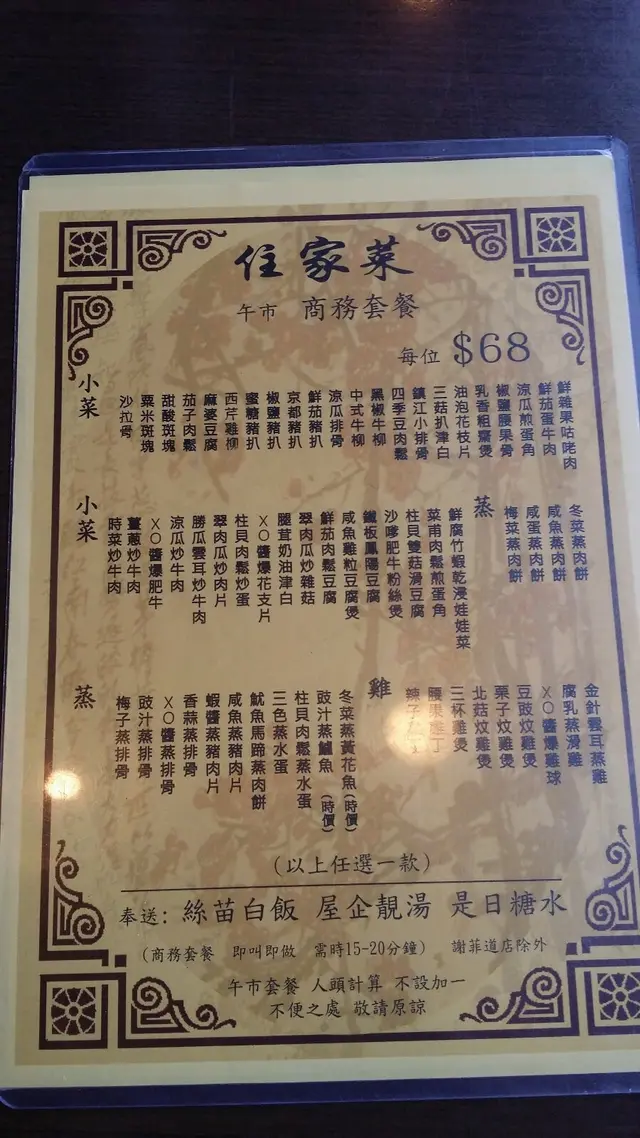 住家菜
午市 商務套餐
每位 $68
小菜
沙拉骨
粟米斑塊
甜酸斑塊
茄子肉鬆
麻婆豆腐
西芹雞柳
蜜糖豬扒
椒鹽豬扒
京都豬扒
鮮茄豬扒
涼瓜排骨
中式牛柳
黑椒牛柳
四季豆肉鬆
鎮江小排骨
三菇扒津白
油泡花枝片
乳香粗齋煲
椒鹽腰果骨
涼瓜煎蛋角
鮮茄蛋牛肉
鮮雜果咕咾肉
小菜
時菜炒牛肉
薑蔥炒牛肉
XO醬爆肥牛
涼瓜炒牛肉
勝瓜雲耳炒牛肉
翠肉瓜炒肉片
柱貝肉鬆炒蛋
XO醬爆花支片
腿茸奶油津白
翠肉瓜炒雜菇
鮮茄肉鬆豆腐
咸魚雞粒豆腐煲
鐵板鳳陽豆腐
沙嗲肥牛粉絲煲
柱貝雙菇滑豆腐
菜甫肉鬆煎蛋角
鮮腐竹蝦乾浸娃娃菜
蒸
梅菜蒸肉餅
咸蛋蒸肉餅
咸魚蒸肉餅
冬菜蒸肉餅
蒸
梅子蒸排骨
豉汁蒸排骨
XO醬蒸排骨
香蒜蒸排骨
蝦醬蒸豬肉片
咸魚蒸豬肉片
魷魚馬蹄蒸肉餅
三色蒸水蛋
柱貝肉鬆蒸水蛋
豉汁蒸鱸魚（時價）
冬菜蒸黃花魚（時價）
雞
辣子
腰果雞丁
三杯雞煲
北菇炆雞煲
栗子炆雞煲
豆豉炆雞煲
XO醬爆雞球
腐乳蒸滑雞
金針雲耳蒸雞
（以上任選一款）
奉送：絲苗白飯 屋企靚湯 是日糖水
（商務套餐 即叫即做 需時15-20分鐘） 謝菲道店除外
午市套餐 人頭計算 不設加一
不便之處 敬請原諒